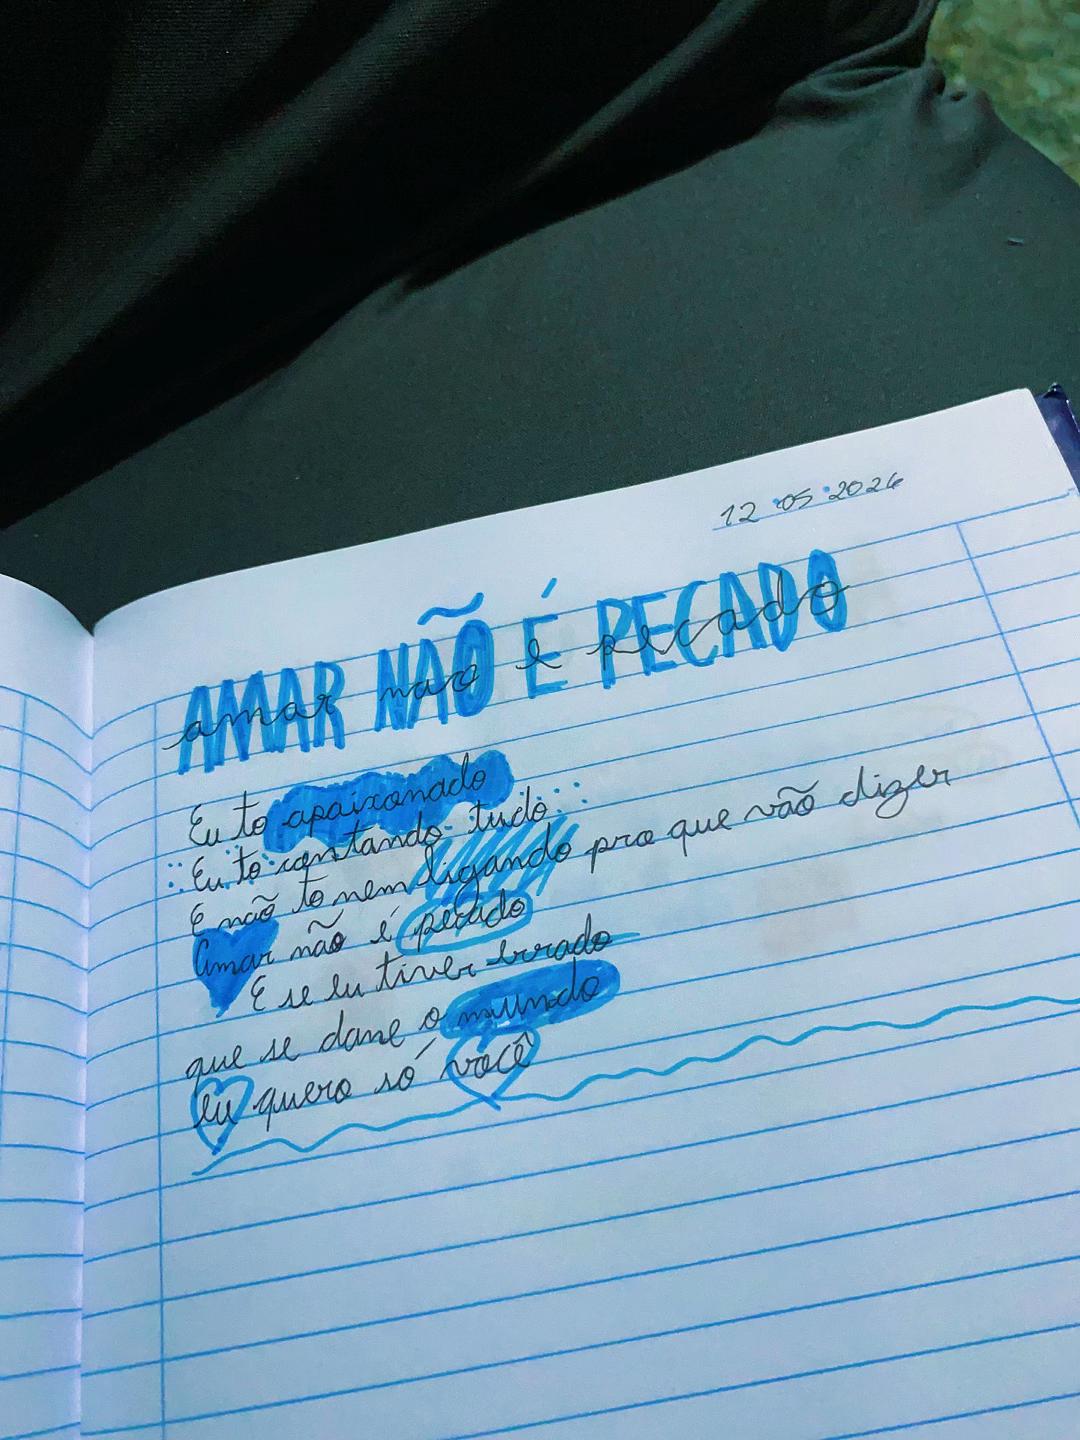 12.05.2026
AMAR NÃO É PECADO
amar não e pecado
Eu to apaixonado
Eu to contando tudo
E não to nem ligando pro que vão dizer
Amar não é pecado
E se eu tiver errado
que se dane o mundo
eu quero só você